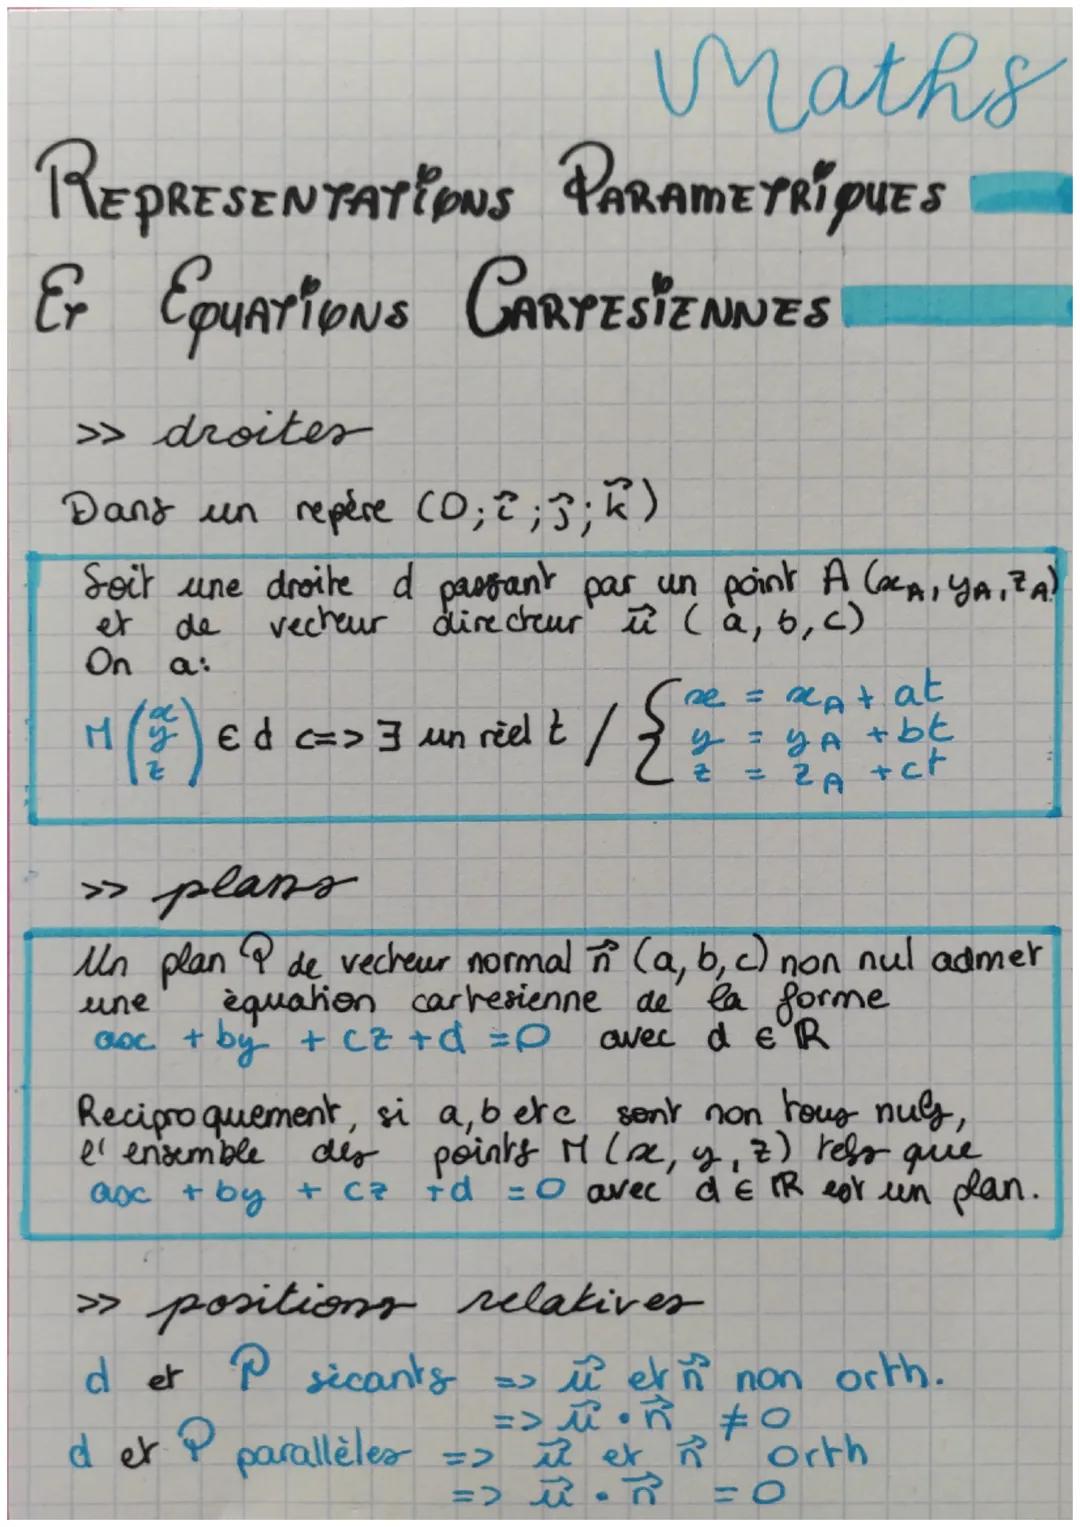 Maths
REPRESENTATIONS PARAMETRIQUES
ET EQUATIONS CARTESIENNES
>> droites
Dans un repère (O; i⃗; j⃗; k⃗)
Soit une droite d passant par un point A (xA, yA, zA)
et de vecteur directeur u⃗ (a, b, c)
On a:
M (x y z) ∈ d <=> ∃ un réel t / { x = xA + at
y = yA + bt
z = zA + ct
>> plans
Un plan P de vecteur normal n⃗ (a, b, c) non nul admet
une équation cartesienne de la forme
ax + by + cz + d = 0 avec d ∈ ℝ
Reciproquement, si a, b et c sont non tous nuls,
l'ensemble des points M (x, y, z) tels que
ax + by + cz + d = 0 avec d ∈ ℝ est un plan.
>> positions relatives
d et P sécants => u⃗ et n⃗ non orth.
=> u⃗ • n⃗ ≠ 0
d et P parallèles => u⃗ et n⃗ orth
=> u⃗ • n⃗ = 0